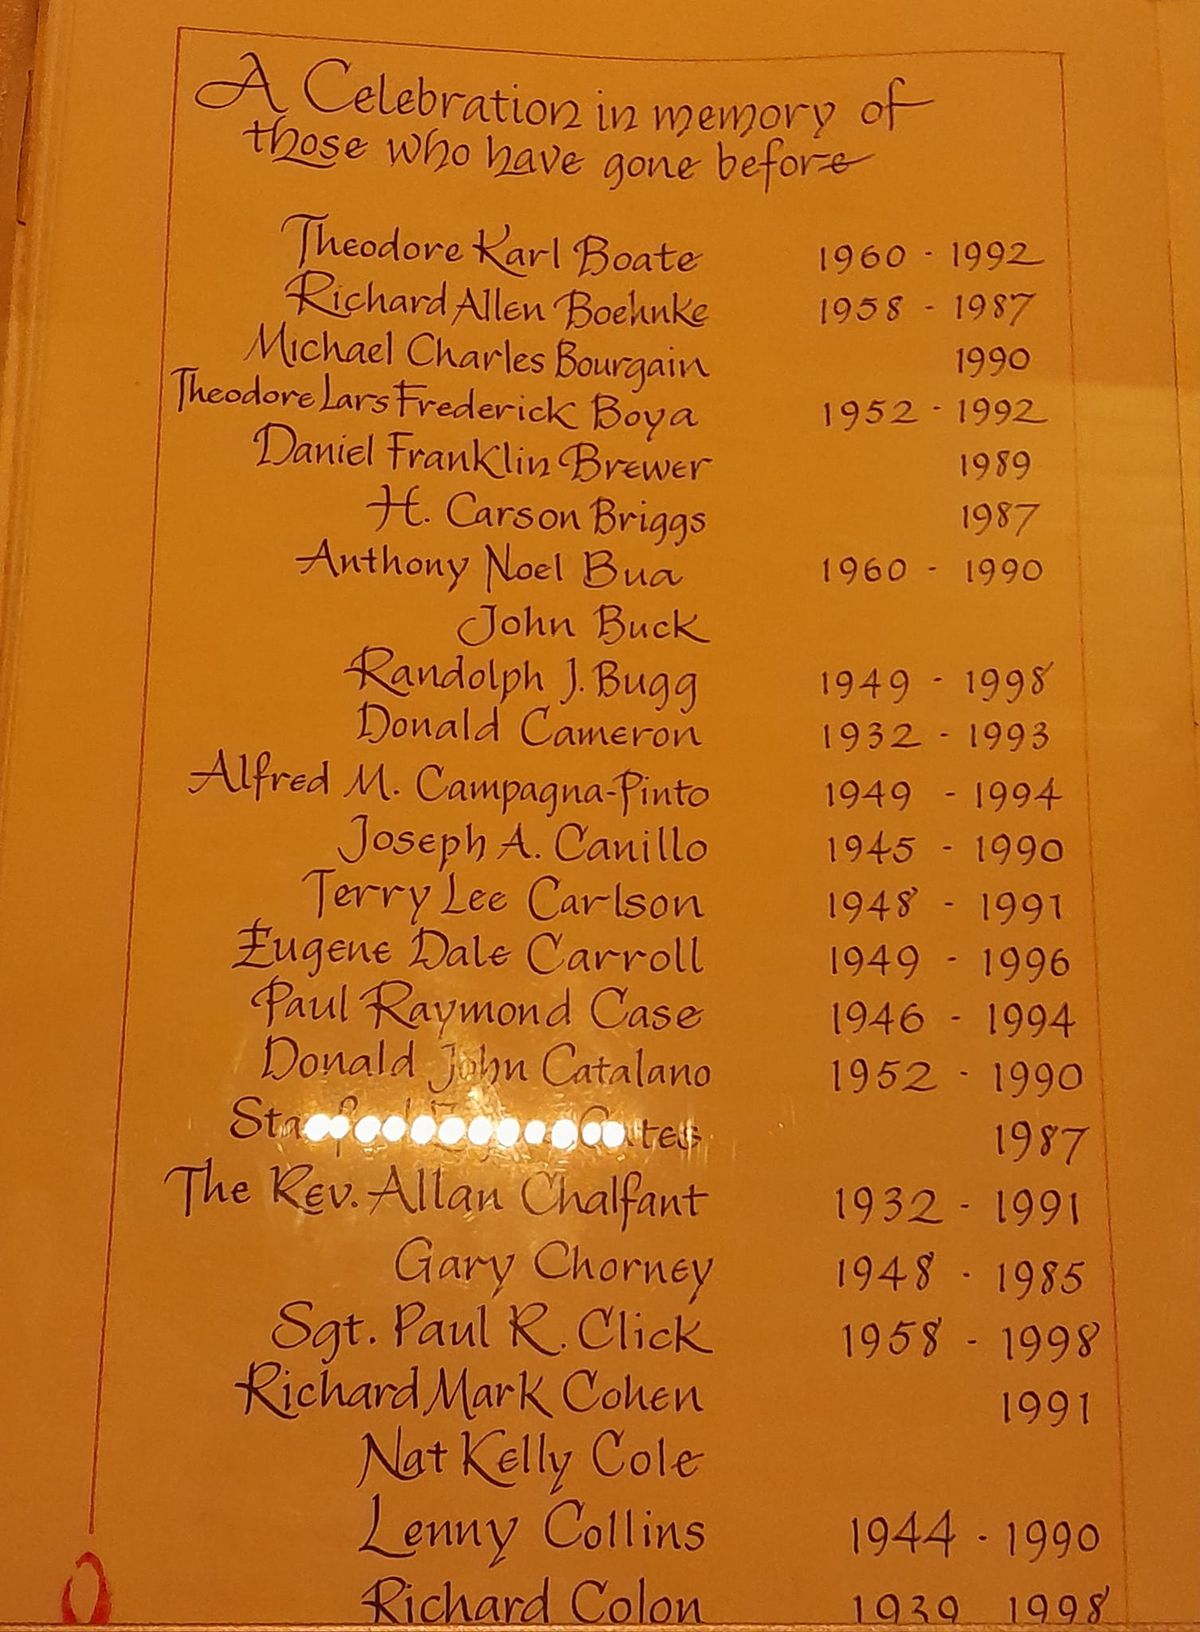 A Celebration in memory of
those who have gone before
Theodore Karl Boate 1960 - 1992
Richard Allen Boehnke 1958 - 1987
Michael Charles Bourgain 1990
Theodore Lars Frederick Boya 1952 - 1992
Daniel Franklin Brewer 1989
H. Carson Briggs 1987
Anthony Noel Bua 1960 - 1990
John Buck
Randolph J. Bugg 1949 - 1998
Donald Cameron 1932 - 1993
Alfred M. Campagna-Pinto 1949 - 1994
Joseph A. Canillo 1945 - 1990
Terry Lee Carlson 1948 - 1991
Eugene Dale Carroll 1949 - 1996
Paul Raymond Case 1946 - 1994
Donald John Catalano 1952 - 1990
1987
The Rev. Allan Chalfant 1932 - 1991
Gary Chorney 1948 - 1985
Sgt. Paul R. Click 1958 - 1998
Richard Mark Cohen 1991
Nat Kelly Cole
Lenny Collins 1944 - 1990
Richard Colon 1939 1998